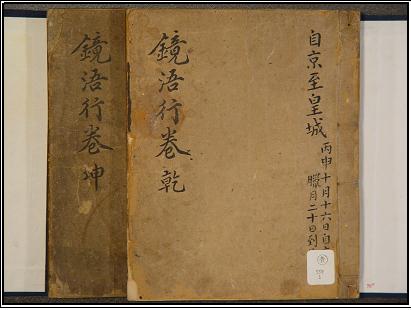 自京至皇城
丙申十月十六日自
臘月二十日到
鏡浯行卷 乾
鏡浯行卷 坤